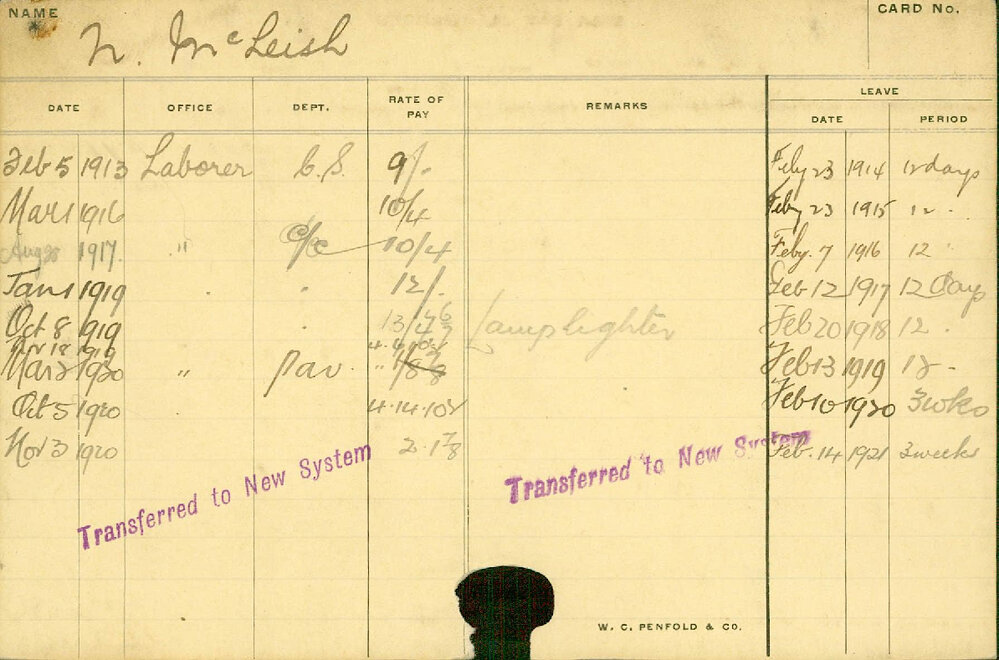 NAME
CARD No.
N. McLeish
DATE OFFICE DEPT. RATE OF PAY REMARKS LEAVE
DATE PERIOD
Feb 5 1913 Laborer C.S. 9/- Feby 23 1914 12 days
Mar 1 1916 10/4 Feby 23 1915 12 "
Aug 1917. " C/C 10/4 Feby. 7 1916 12 "
Jan 1 1919 " 12/- Feb 12 1917 12 Days
Oct 8 1919 " Lamplighter Feb 20 1918 12 "
Nov 12 1919
Mar 2 1920 " Pav. Feb 13 1919 12 "
Oct 5 1920 4.14.10½ Feb 10 1920 3 wks
Nov 3 1920 2.1⅞ Feb. 14 1921 3 weeks
Transferred to New System
Transferred to New System
W. C. PENFOLD & CO.